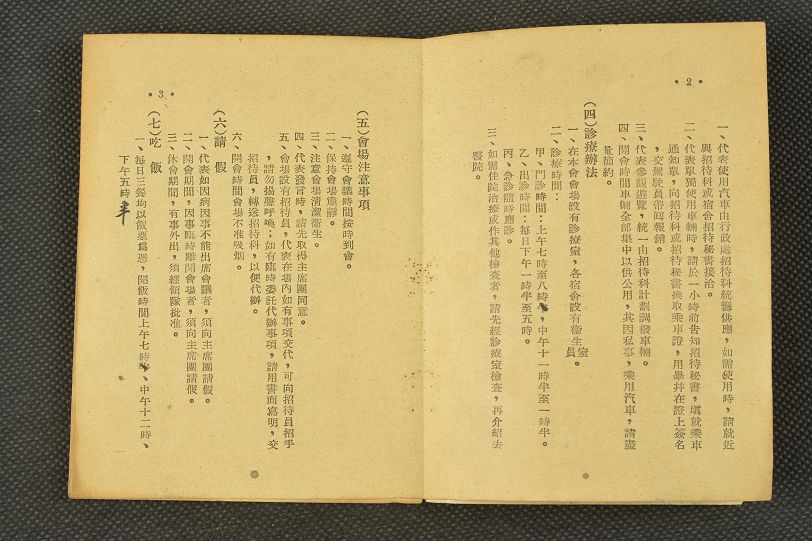 • 2 •
一、代表使用汽車由行政處招待科統籌供應，如需使用時，請就近
與招待科或宿舍招待秘書接洽。
二、代表單獨使用車輛時，請於一小時前告知招待秘書，填就乘車
通知單，向招待科或招待秘書換取乘車證，用畢幷在證上簽名
，交駕駛員帶囘報銷。
三、代表參觀遊覽，統一由招待科計劃調撥車輛。
四、開會時間車輛全部集中以供公用，其因私事，乘用汽車，請盡
量節約。
（四）診療辦法
一、在本會會場設有診療室，各宿舍設有衞生室
員。
二、診療時間：
甲、門診時間：上午七時至八時，中午十一時半至一時半。
乙、出診時間：每日下午一時半至五時。
丙、急診隨時應診。
三、如需住院治療或作其他檢查者，請先經診療室檢查，再介紹去
醫院。
• 3 •
（五）會場注意事項
一、遵守會議時間按時到會。
二、保持會場肅靜。
三、注意會場清潔衞生。
四、代表發言時，請先取得主席團同意。
五、會場設有招待員，代表在場內如有事項交代，可向招待員招手
，請勿揚聲呼喚；如有臨時委託代辦事項，請用書面寫明，交
招待員，轉送招待科，以便代辦。
六、開會時間會場不准吸烟。
（六）請　假
一、代表如因病因事不能出席會議者，須向主席團請假。
二、開會期間，因事臨時離開會場者，須向主席團請假。
三、休會期間，有事外出，須經領隊批准。
（七）吃　飯
一、每日三餐均以飯票爲憑，開飯時間上午七時、中午十二時、
下午五時半